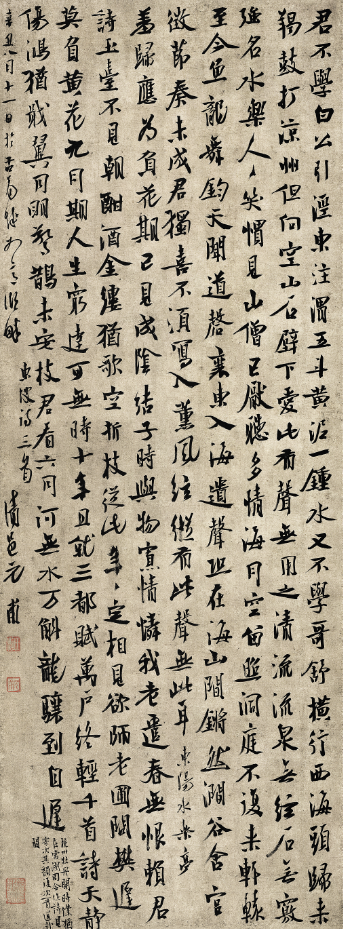 君不學白公引涇東注渭五斗黃泥一鍾水又不學哥舒橫行西海頭歸來
羯鼓打涼州但向空山石壁下愛此有聲無用之清流流泉無弦石無竅
強名水樂人〻笑慣見山僧已厭聽多情海月空留照洞庭不復來軒轅
至今魚龍舞鈞天聞道磬襄東入海遺聲恐在海山間鏘然澗谷含宮
徵節奏未成君獨喜不須寫入薰風弦縱有此聲無此耳 東陽水樂亭
羞歸應為負花期已見成陰結子時與物寡情憐我老遣春無恨賴君
詩玉臺不見朝酣酒金縷猶歌空折枝從此年〻定相見欲師老圃問樊遲
莫負黃花九月期人生窮達可無時十年且就三都賦萬戶終輕千首詩天靜
傷鴻猶戢翼月明驚鵲未安枝君看六月河無水萬斛龍驤到自遲
杭州牡丹開時僕猶
在常潤周令作詩見
寄次其韻復次一首送赴
闕
辛丑八月十一日於古 東坡詩三首 元甫